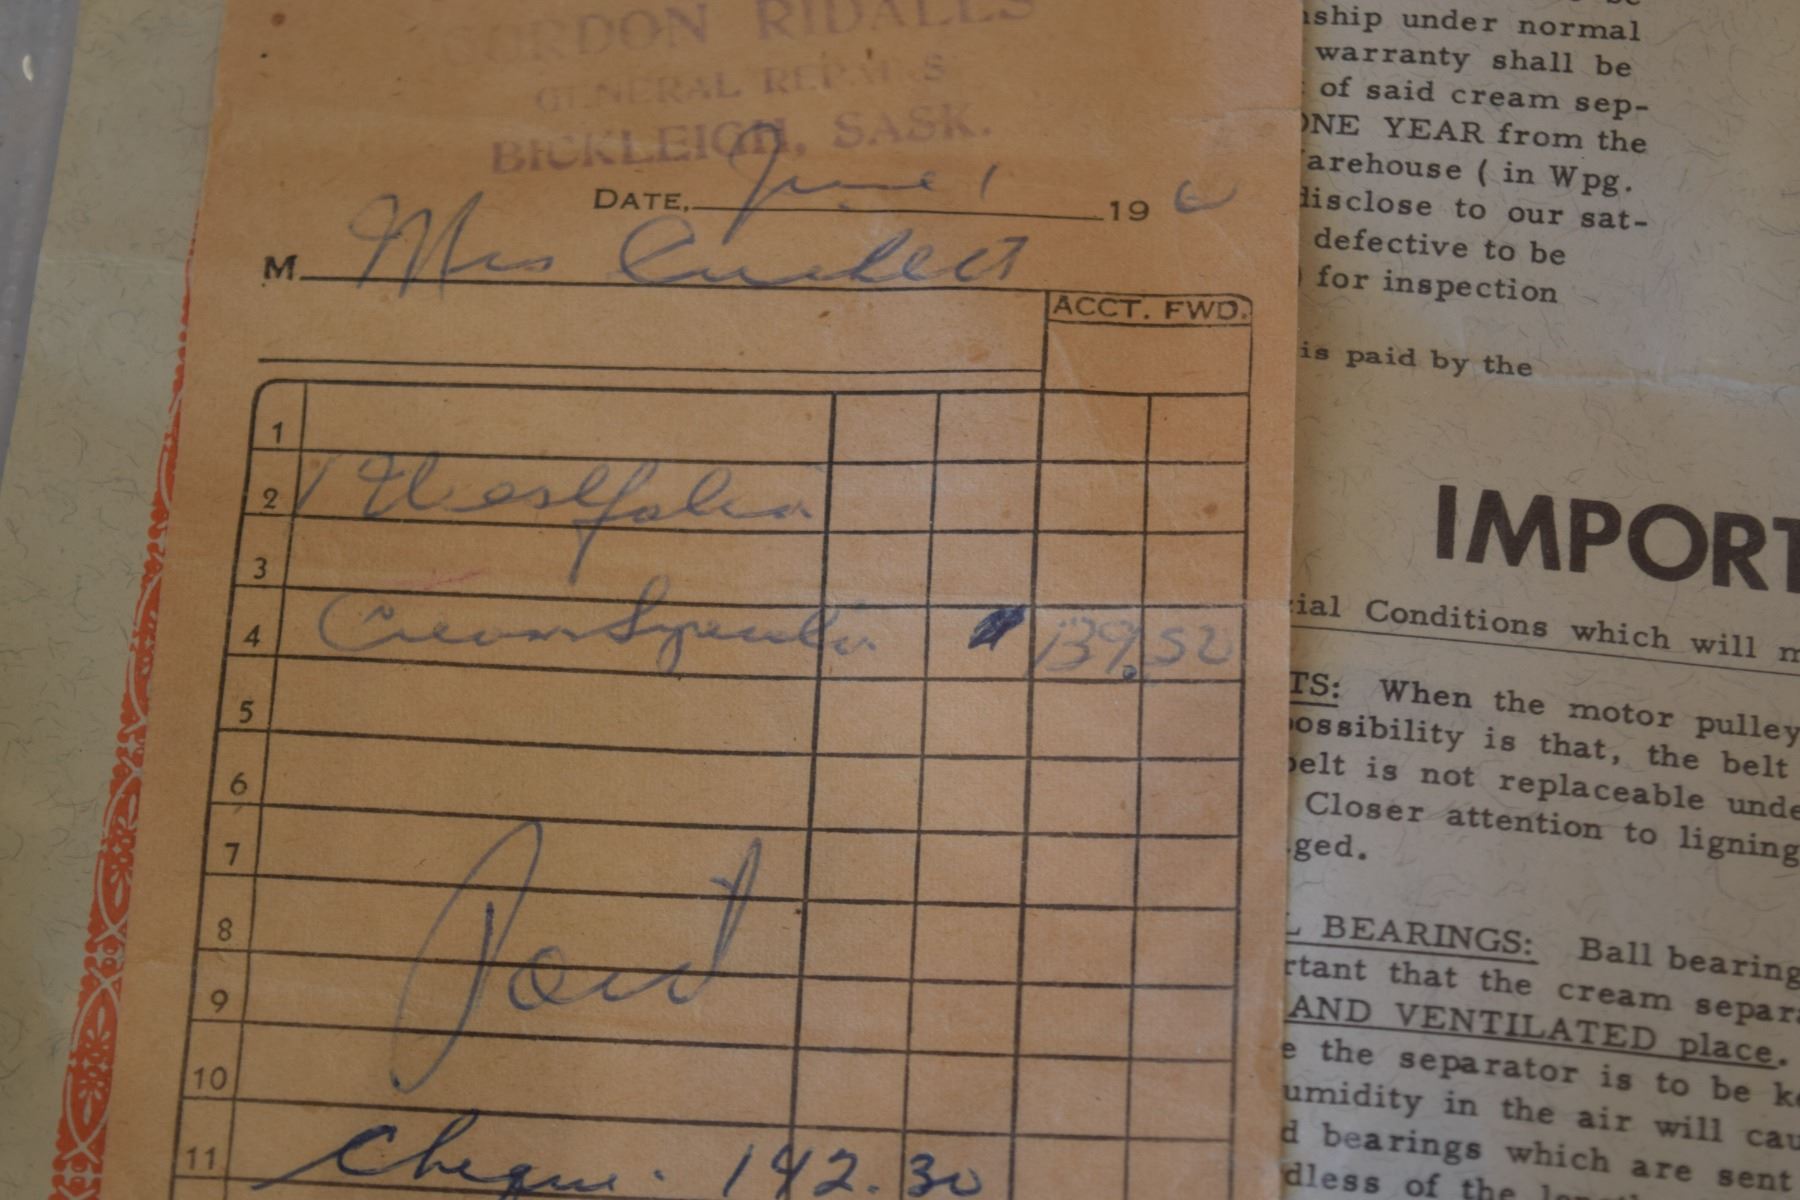 GORDON RIDALLS
GENERAL REPAIRS
BICKLEIGH, SASK.
DATE. June 1 19 6
M Mrs
ACCT. FWD.
1
2 1 Westfalia
3
4 Cream Seperator 139.52
5
6
7
8 Paid
9
10
11 Cheque. 142.30
ship under normal
warranty shall be
of said cream sep-
ONE YEAR from the
arehouse ( in Wpg.
disclose to our sat-
defective to be
) for inspection
is paid by the
IMPORT
cial Conditions which will m
TS: When the motor pulley
possibility is that, the belt
belt is not replaceable unde
Closer attention to ligning
ged.
L BEARINGS: Ball bearing
rtant that the cream separa
AND VENTILATED place.
e the separator is to be ke
umidity in the air will cau
d bearings which are sent
dless of the